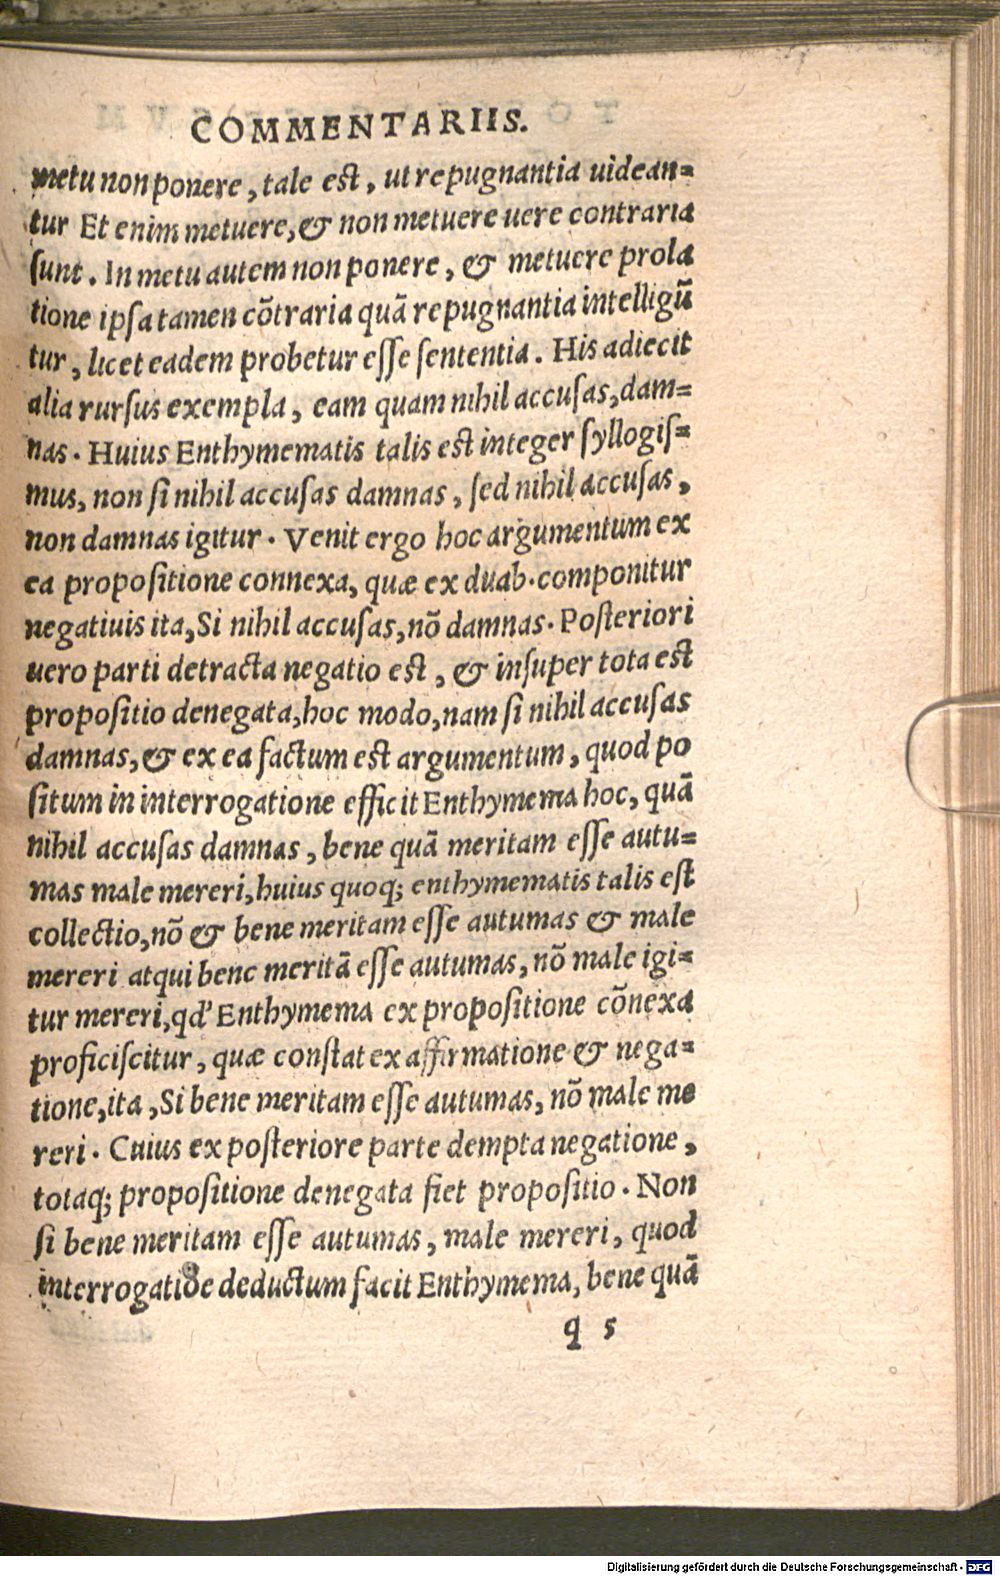 COMMENTARIIS.
metu non ponere, tale est, ut repugnantia uidean=
tur Et enim metuere, & non metuere uere contraria
sunt. In metu autem non ponere, & metuere prola
tione ipsa tamen cõtraria quã repugnantia intelligũ
tur, licet eadem probetur esse sententia. His adiecit
alia rursus exempla, eam quam nihil accusas, dam=
nas. Huius Enthymematis talis est integer syllogis=
mus, non si nihil accusas damnas, sed nihil accusas,
non damnas igitur. Venit ergo hoc argumentum ex
ea propositione connexa, quæ ex duab. componitur
negatiuis ita, Si nihil accusas, nõ damnas. Posteriori
uero parti detracta negatio est, & insuper tota est
propositio denegata, hoc modo, nam si nihil accusas
damnas, & ex ea factum est argumentum, quod po
situm in interrogatione efficit Enthymema hoc, quã
nihil accusas damnas, bene quã meritam esse autu=
mas male mereri, huius quoq; enthymematis talis est
collectio, nõ & bene meritam esse autumas & male
mereri atqui bene meritã esse autumas, nõ male igi=
tur mereri, qd' Enthymema ex propositione cõnexa
proficiscitur, quæ constat ex affirmatione & nega=
tione, ita, Si bene meritam esse autumas, nõ male me
reri. Cuius ex posteriore parte dempta negatione,
totaq; propositione denegata fiet propositio. Non
si bene meritam esse autumas, male mereri, quod
interrogatiõe deductum facit Enthymema, bene quã
q 5
Digitalisierung gefördert durch die Deutsche Forschungsgemeinschaft - DFG